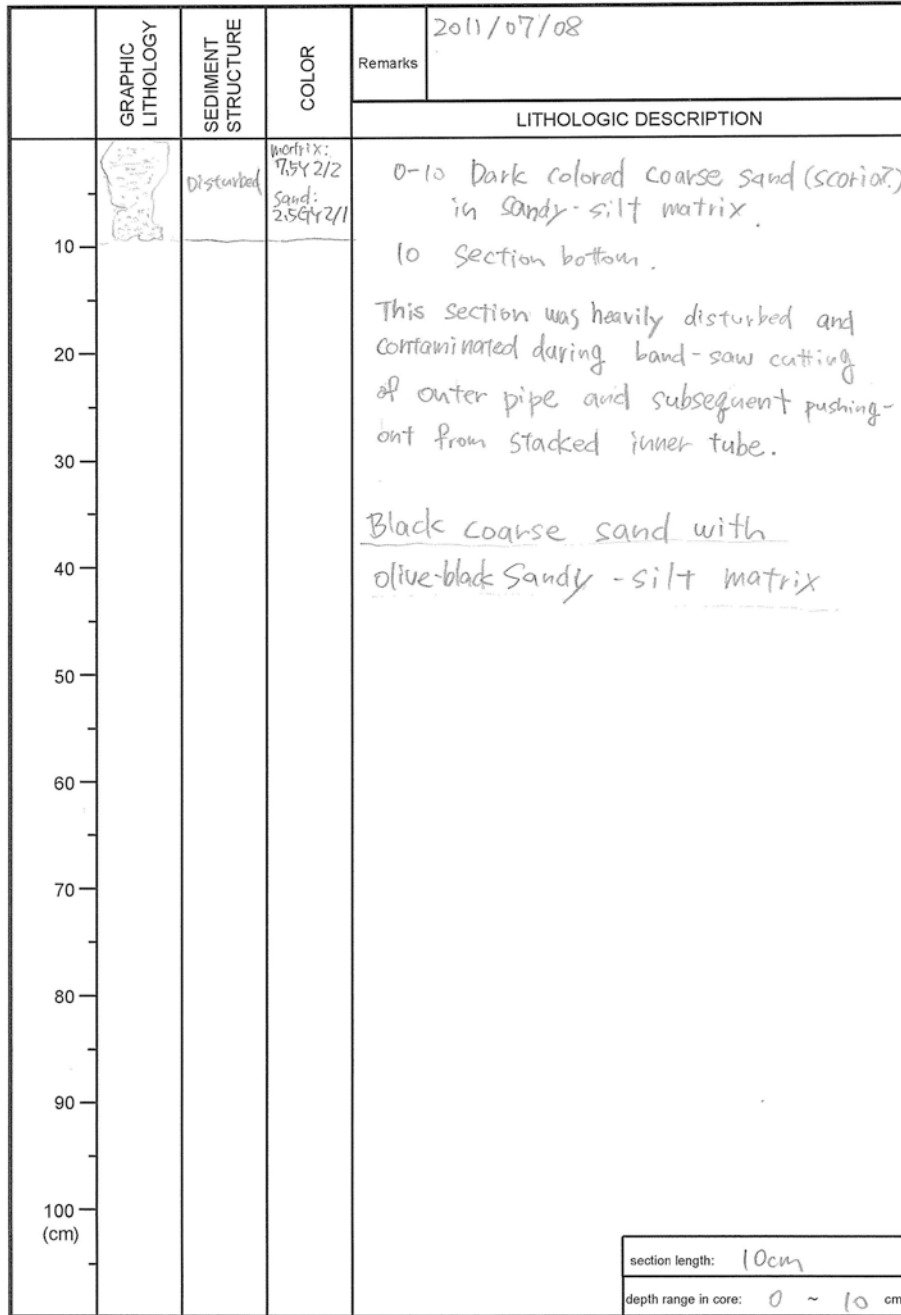 GRAPHIC
LITHOLOGY
SEDIMENT
STRUCTURE
COLOR
Remarks
2011/07/08
LITHOLOGIC DESCRIPTION
Disturbed
matrix:
7.5Y 2/2
Sand:
2.5GY 2/1
0-10 Dark colored coarse sand (scoria?)
in sandy-silt matrix.
10 Section bottom.
This section was heavily disturbed and
contaminated during band-saw cutting
of outer pipe and subsequent pushing-
out from stacked inner tube.
Black coarse sand with
olive-black Sandy-silt matrix
10
20
30
40
50
60
70
80
90
100
(cm)
section length: 10cm
depth range in core: 0 ~ 10 cm